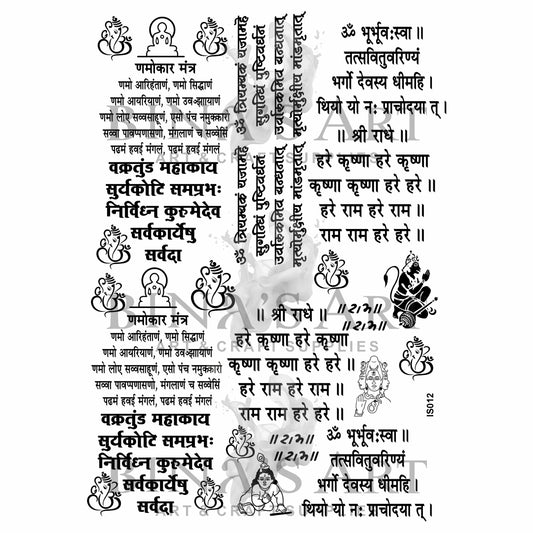 णमोकार मंत्र
णमो आरिहंताणं, णमो सिद्धाणं
णमो आयरियाणं, णमो उवज्झायाणं
णमो लोए सव्वसाहूणं, एसो पंच नमुक्कारो
सव्वा पावप्पणासणो, मंगलाणं च सव्वेसिं
पढमं हवई मंगलं, पढमं हवई मंगलं
वक्रतुंड महाकाय
सुर्यकोटि समप्रभः
निर्विघ्न कुरुमेदेव
सर्वकार्येषु
सर्वदा
ॐ त्रियम्बकं यजामहे
सुगन्धिं पुष्टिवर्धनं
उर्वारुकमिव बन्धनात्
मृत्योर्मुक्षीय मांमृतात्
ॐ त्रियम्बकं यजामहे
सुगन्धिं पुष्टिवर्धनं
उर्वारुकमिव बन्धनात्
मृत्योर्मुक्षीय मांमृतात्
ॐ भूर्भूवःस्वा ॥
तत्सवितुवरिण्यं
भर्गो देवस्य धीमहि ।
थियो यो नः प्राचोदया त् ।
॥ श्री राधे ॥
हरे कृष्णा हरे कृष्णा
कृष्णा कृष्णा हरे हरे ॥
हरे राम हरे राम ॥
राम राम हरे हरे ॥
णमोकार मंत्र
णमो आरिहंताणं, णमो सिद्धाणं
णमो आयरियाणं, णमो उवज्झायाणं
णमो लोए सव्वसाहूणं, एसो पंच नमुक्कारो
सव्वा पावप्पणासणो, मंगलाणं च सव्वेसिं
पढमं हवई मंगलं, पढमं हवई मंगलं
वक्रतुंड महाकाय
सुर्यकोटि समप्रभः
निर्विघ्न कुरुमेदेव
सर्वकार्येषु
सर्वदा
॥ श्री राधे ॥
हरे कृष्णा हरे कृष्णा
कृष्णा कृष्णा हरे हरे ॥
हरे राम हरे राम ॥
राम राम हरे हरे ॥
॥ राम ॥
॥ राम ॥
॥ राम ॥
॥ राम ॥
ॐ भूर्भूवःस्वा ॥
तत्सवितुवरिण्यं
भर्गो देवस्य धीमहि ।
थियो यो नः प्राचोदया त् ।
IS012
BINA'S ART
ART & CRAFT SUPPLIES
BINA'S ART
ART & CRAFT SUPPLIES
BINA'S ART
ART & CRAFT SUPPLIES